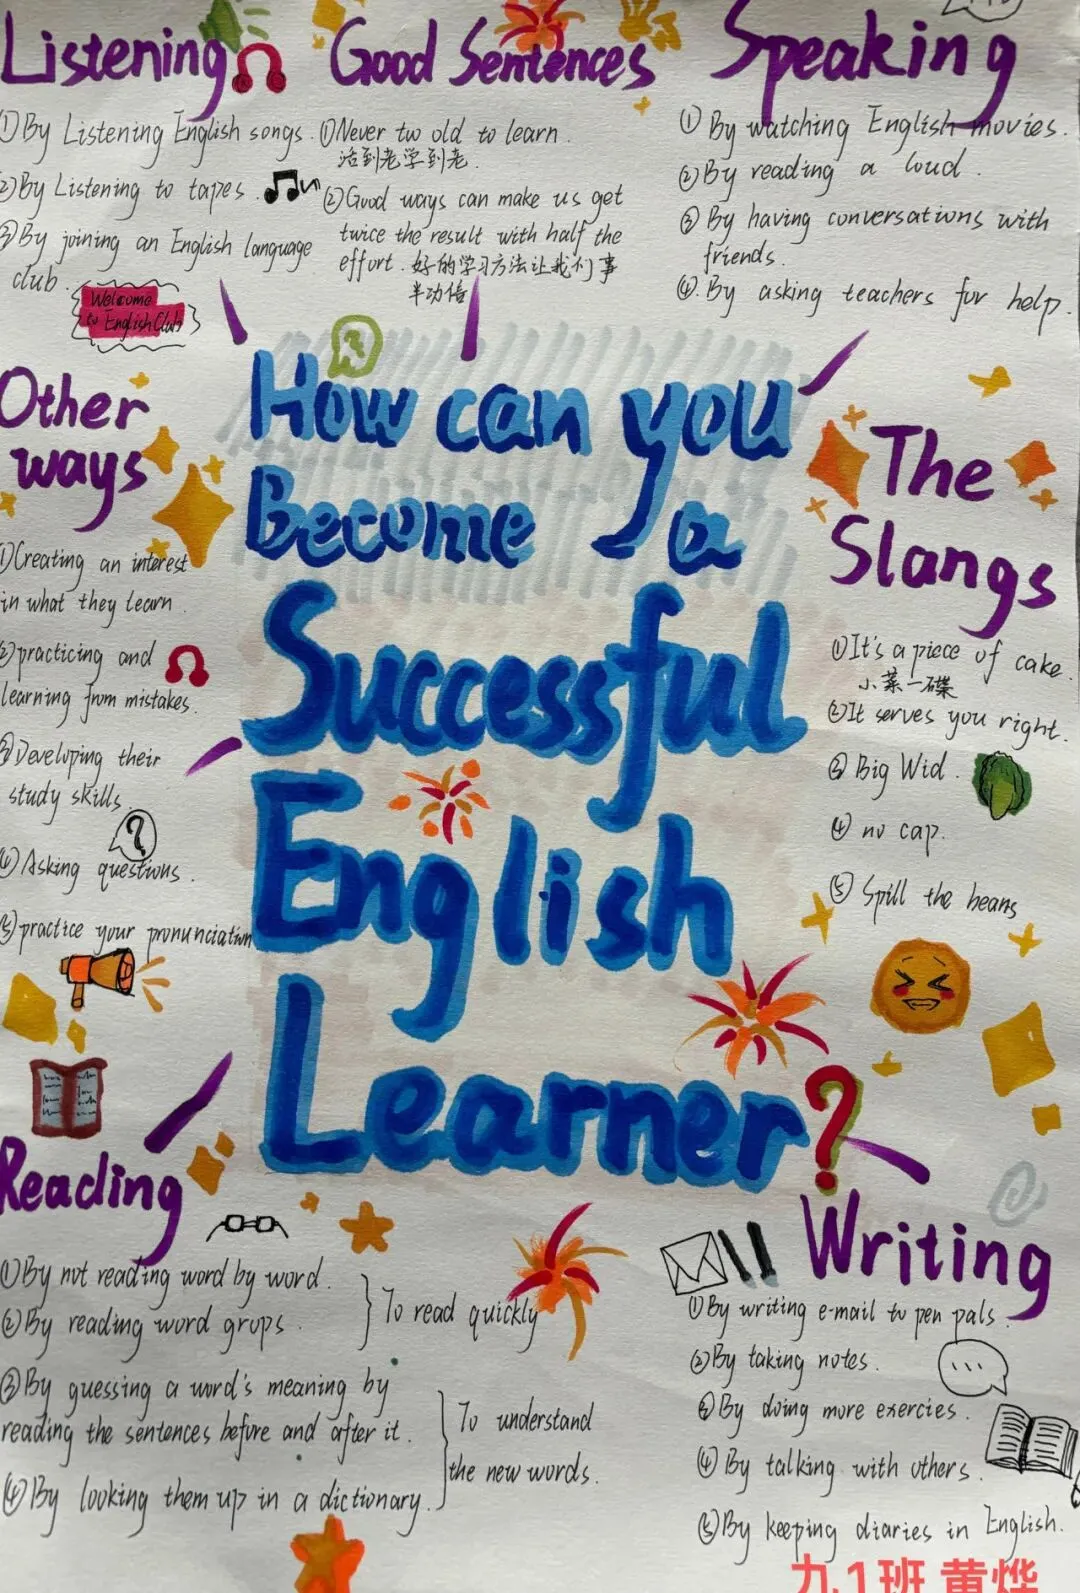 Listening
①By Listening English songs.
②By Listening to tapes.
③By joining an English language
club.
Welcome
to English Club
Good Sentences
①Never two old to learn.
活到老学到老.
②Good ways can make us get
twice the result with half the
effort.好的学习方法让我们事
半功倍
Speaking
①By watching English movies.
②By reading a loud.
③By having conversations with
friends.
④.By asking teachers for help.
How can you
Become a
Successful
English
Learner?
Other
ways
①Creating an interest
in what they learn.
②practicing and
learning from mistakes.
③Developing their
study skills.
?
④Asking questions.
⑤practice your pronunciation
The
Slangs
①It's a piece of cake.
小菜一碟
②It serves you right.
③Big Wid.
④no cap.
⑤Spill the beans
Reading
①By not reading word by word.
②By reading word grops.
To read quickly
③By guessing a word's meaning by
reading the sentences before and after it.
④By looking them up in a dictionary.
To understand
the new words.
Writing
①By writing e-mail to pen pals.
②By taking notes.
③By doing more exercies.
④By talking with others.
⑤By keeping diaries in English.
九.1班 黄烨